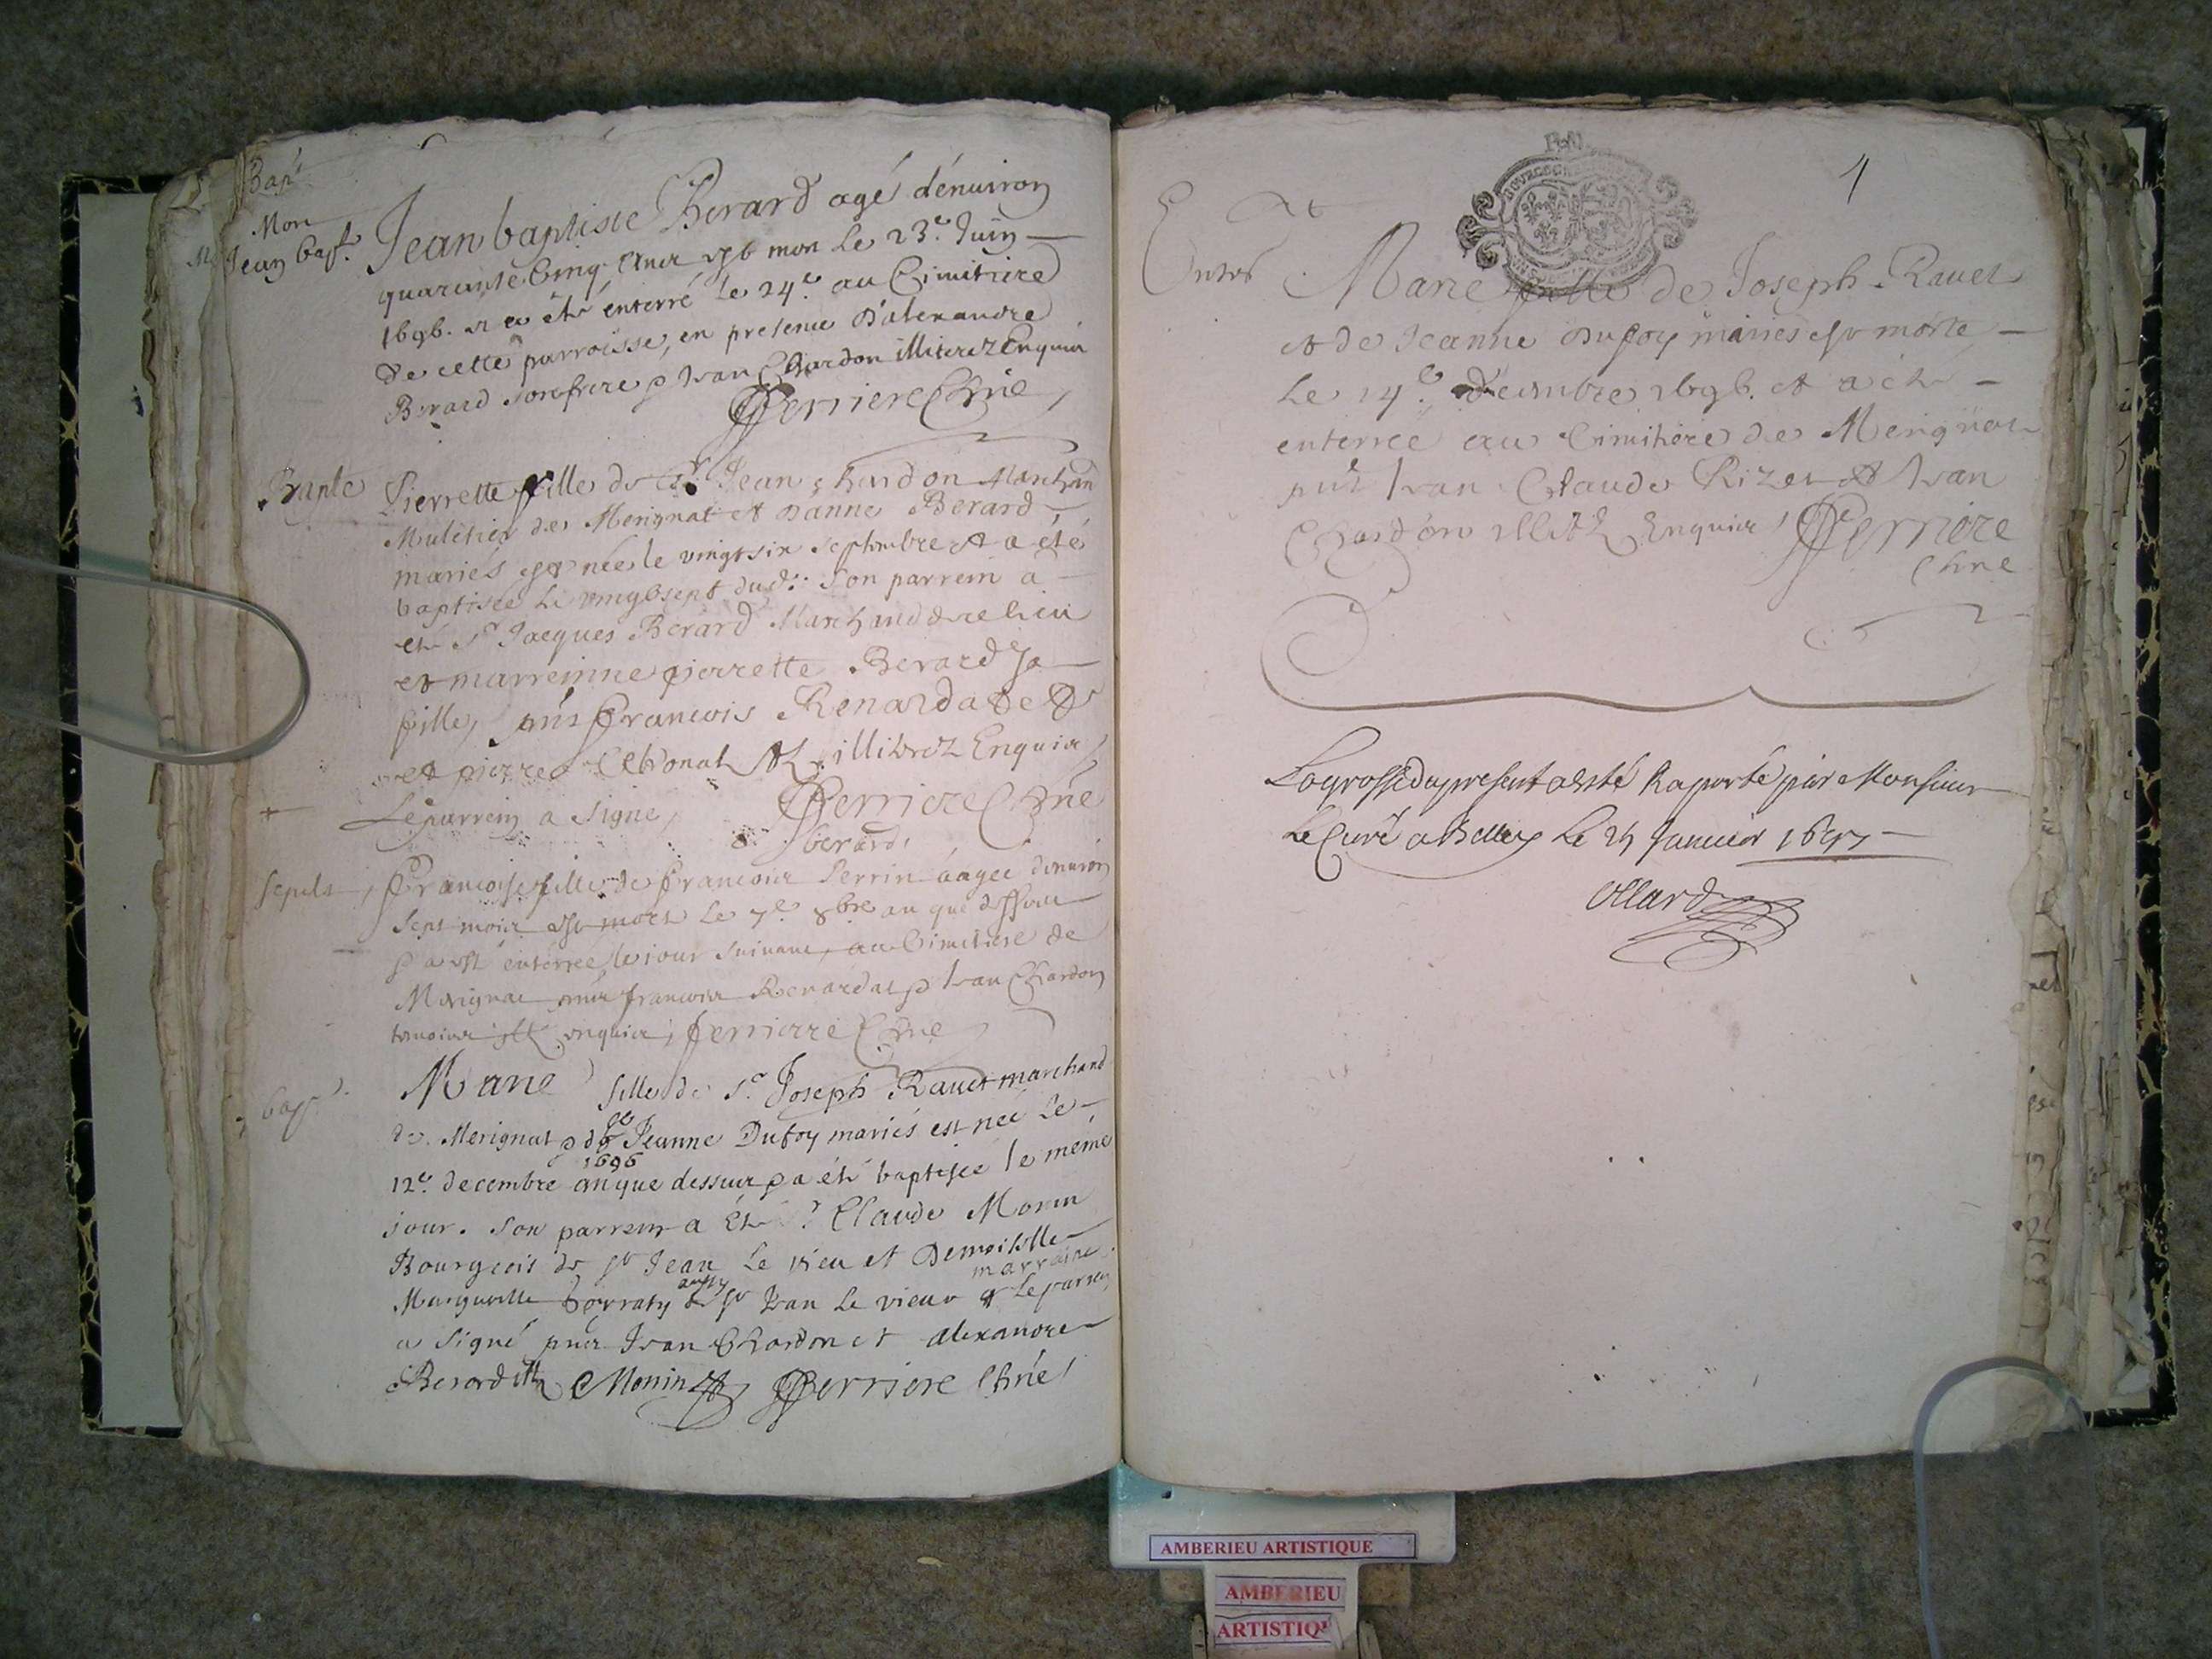 Bap.
Mort
Jean bap.
Jean baptiste Berard agé dénuiron
quarante Cinq Ans est mort Le 23.e Juin
1696. et a été enterré Le 24.e au Cimitiere
de cette parroisse, en presence D'alexandre
Berard son frere & Jean Chardon illiterez Enquis
Perriere Curé
Bapte
Pierrette fille de Sr. Jean Chardon Marchan
Muletier de Merignat et Danne Berard
mariés est née le vingtsix Septembre et a été
baptisée Le vingtsept dud. Son parrein a
eté Sr Jacques Berard Marchand de ce lieu
et marreinne pierrette Berard Sa
fille, pnts Francois Renardat et
et pierre illiterez Enquis
Le parrein a Signé Perriere Curé
berard
sepult
Francoise fille de Francois Perrin aagée denuiron
Sept mois est morte Le 7.e 8bre an que dessus
& a esté enterrée le iour Suiuant, au Cimetiere de
Merignat pnts francois Renardat & Jean Chardon
temoins ill. enquis, Perriere Curé
bap.
Marie fille de Sr. Joseph Rauet marchand
de Merignat & de Jeanne Dufoy mariés est née Le
1696
12.e decembre an que dessus & a été baptisée le même
jour. Son parrein a Eté Sr Claude Monin
Bourgeois de St Jean Le vieu et Demoiselle
marraine
Marguerite aussy de St Jean Le vieux & Le parrein
a Signé pnts Jean Chardon et alexandre
Berard ill. Monin Perriere Curé
1
Enter
Marie fille de Joseph Rauet
et de Jeanne Dufoy mariés est morte
Le 14.e decembre 1696. et a été
enterrée au Cimitiere de Merignat
pnts Jean Claude Rizet et Jean
Chardon illit. Enquis Perriere
Curé
La grosse du present a esté Raporté par Monsieur
Le Curé a Belley Le 25 Januier 1697
Ollard
AMBERIEU ARTISTIQUE
AMBERIEU
ARTISTIQU